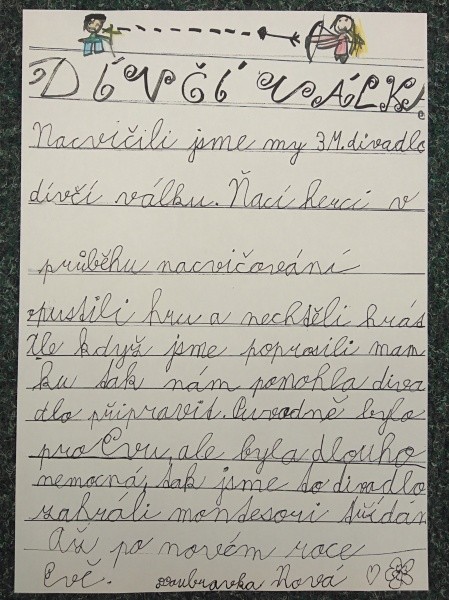 DÍVČÍ VÁLKA
Nacvičili jsme my 3.M. divadlo
dívčí válku. Ňací herci v
průběhu nacvičování
opustili hru a nechtěli hrás
Ale když jsme poprosili mam
ku tak nám ponohla diva
dlo připravit. Puvodně bylo
pro Evu, ale byla dlouho
nemocná, tak jsme to divadlo
zahráli montesori třídán
Až po novém roce
Evě. Doubravka Nová